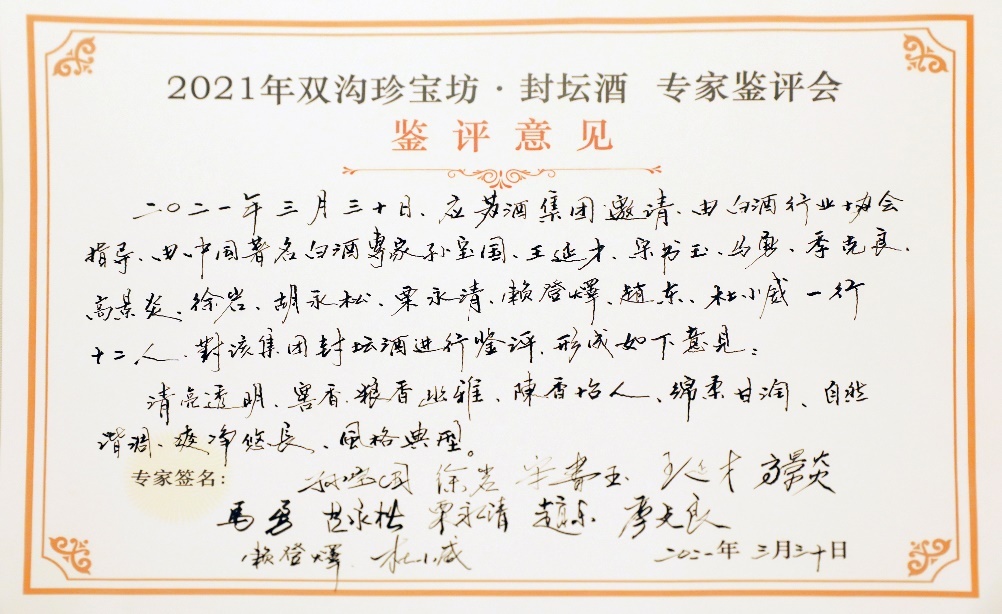 2021年双沟珍宝坊·封坛酒 专家鉴评会
鉴评意见
二〇二一年三月三十日、应苏酒集团邀请、由白酒行业协会
指导、由中国著名白酒專家孙宝国、王延才、宋书玉、马勇、季克良、
高景炎、徐岩、胡永松、栗永清、赖登燡、趙东、杜小威一行
十二人、對该集团封坛酒进行鉴评、形成如下意見：
清亮透明、窖香粮香幽雅、陳香怡人、绵柔甘润、自然
谐调、爽净悠長、風格典型。
专家签名：孙宝国 徐岩 宋書玉 王延才 高景炎
马勇 胡永松 栗永清 趙东 季克良
赖登燡 杜小威 二〇二一年三月三十日